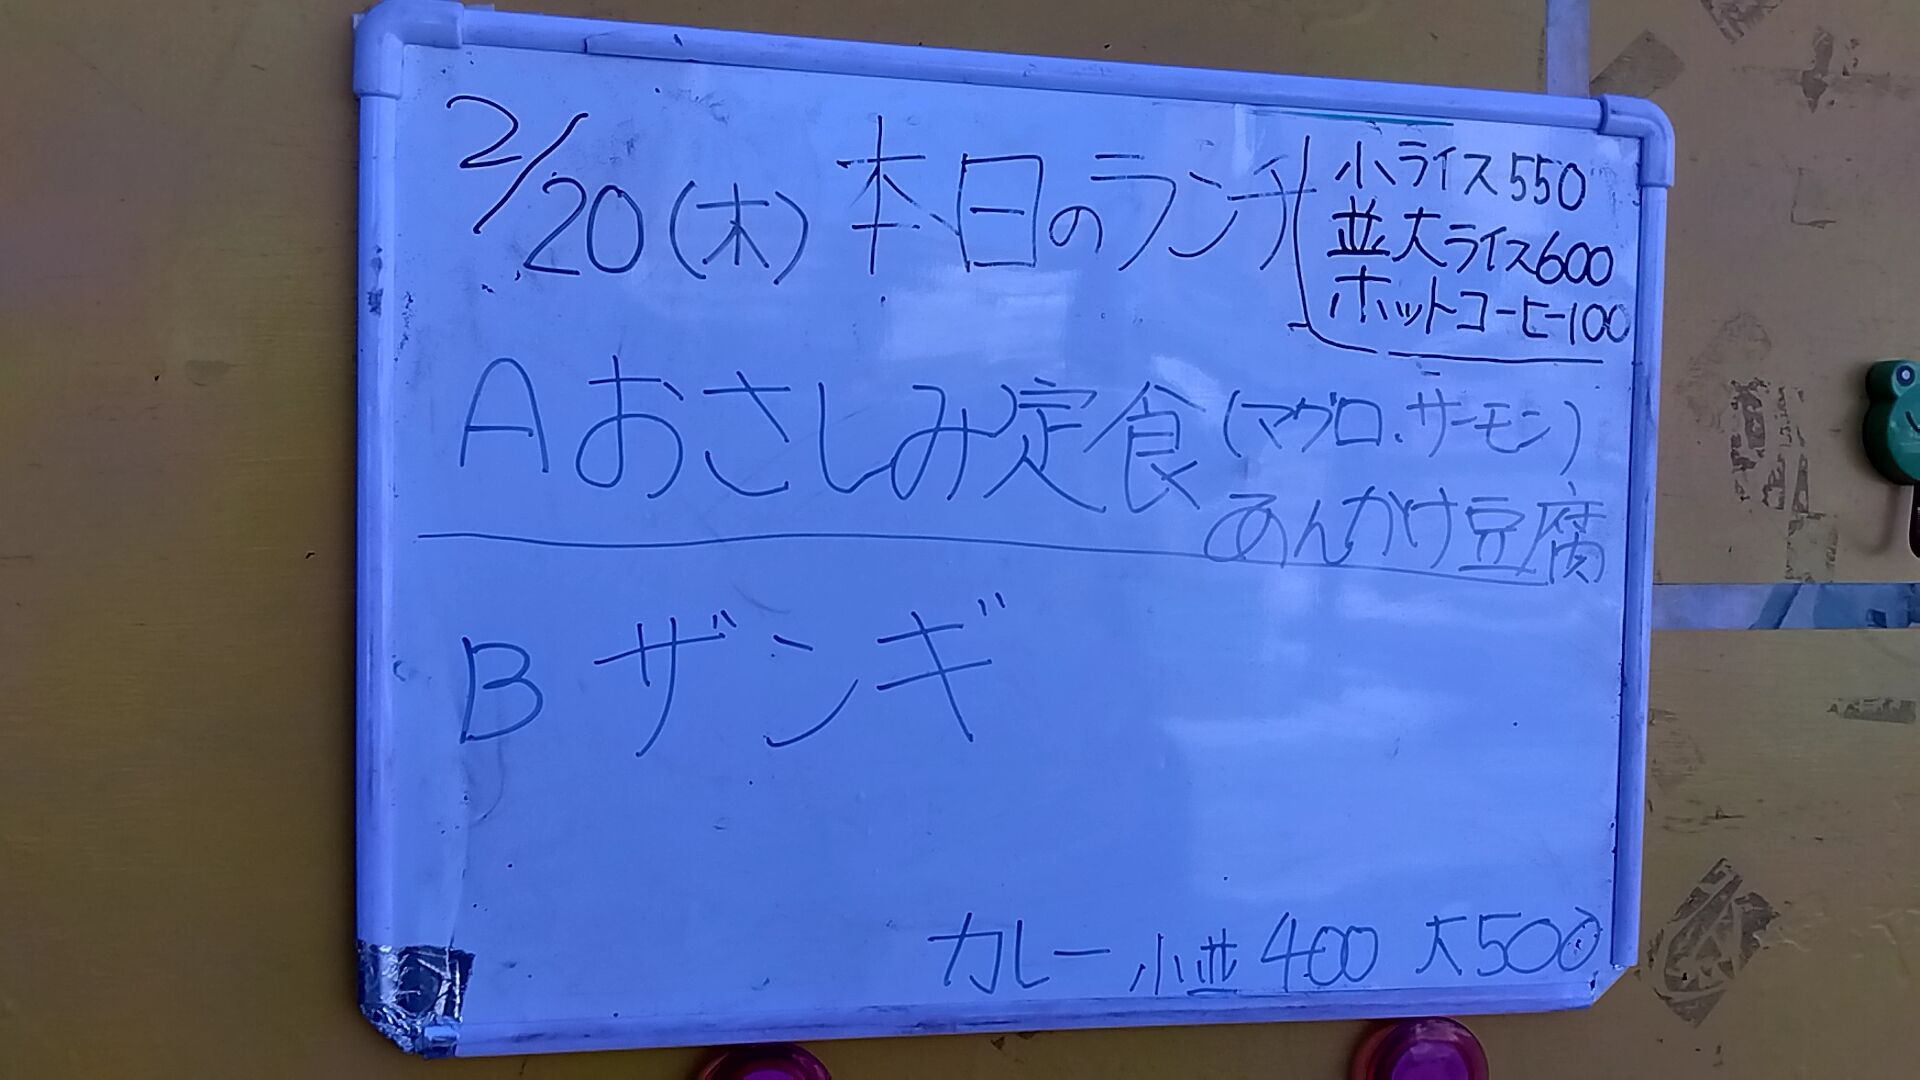 2/20(木) 本日のランチ
小ライス550
並大ライス600
ホットコーヒー100
A おさしみ定食(マグロ.サーモン)
あんかけ豆腐
B ザンギ
カレー 小並 400 大500